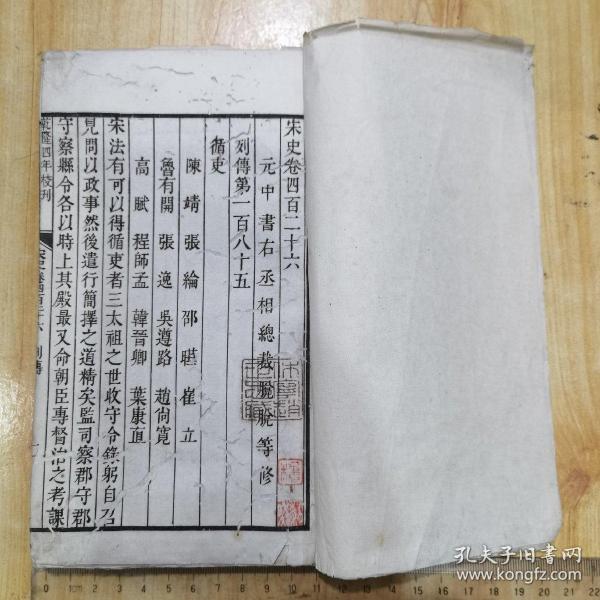 宋史卷四百二十六
元中書右丞相總裁脫脫等修
列傳第一百八十五
循吏
陳靖 張綸 邵曄 崔立
魯有開 張逸 吳遵路 趙尚寬
高賦 程師孟 韓晉卿 葉康直
宋法有可以得循吏者三太祖之世牧守令錄躬自召
見問以政事然後遣行簡擇之道精矣監司察郡守郡
守察縣令各以時上其殿最又命朝臣專督治之考課
乾隆四年校刊
宋史卷四百二十六 列傳
孔夫子旧书网
www.kongfz.com
0 1 2 3 4 5 6 7 8 9 10 11 12 13 14 15 16 17 18 19 20 21 22